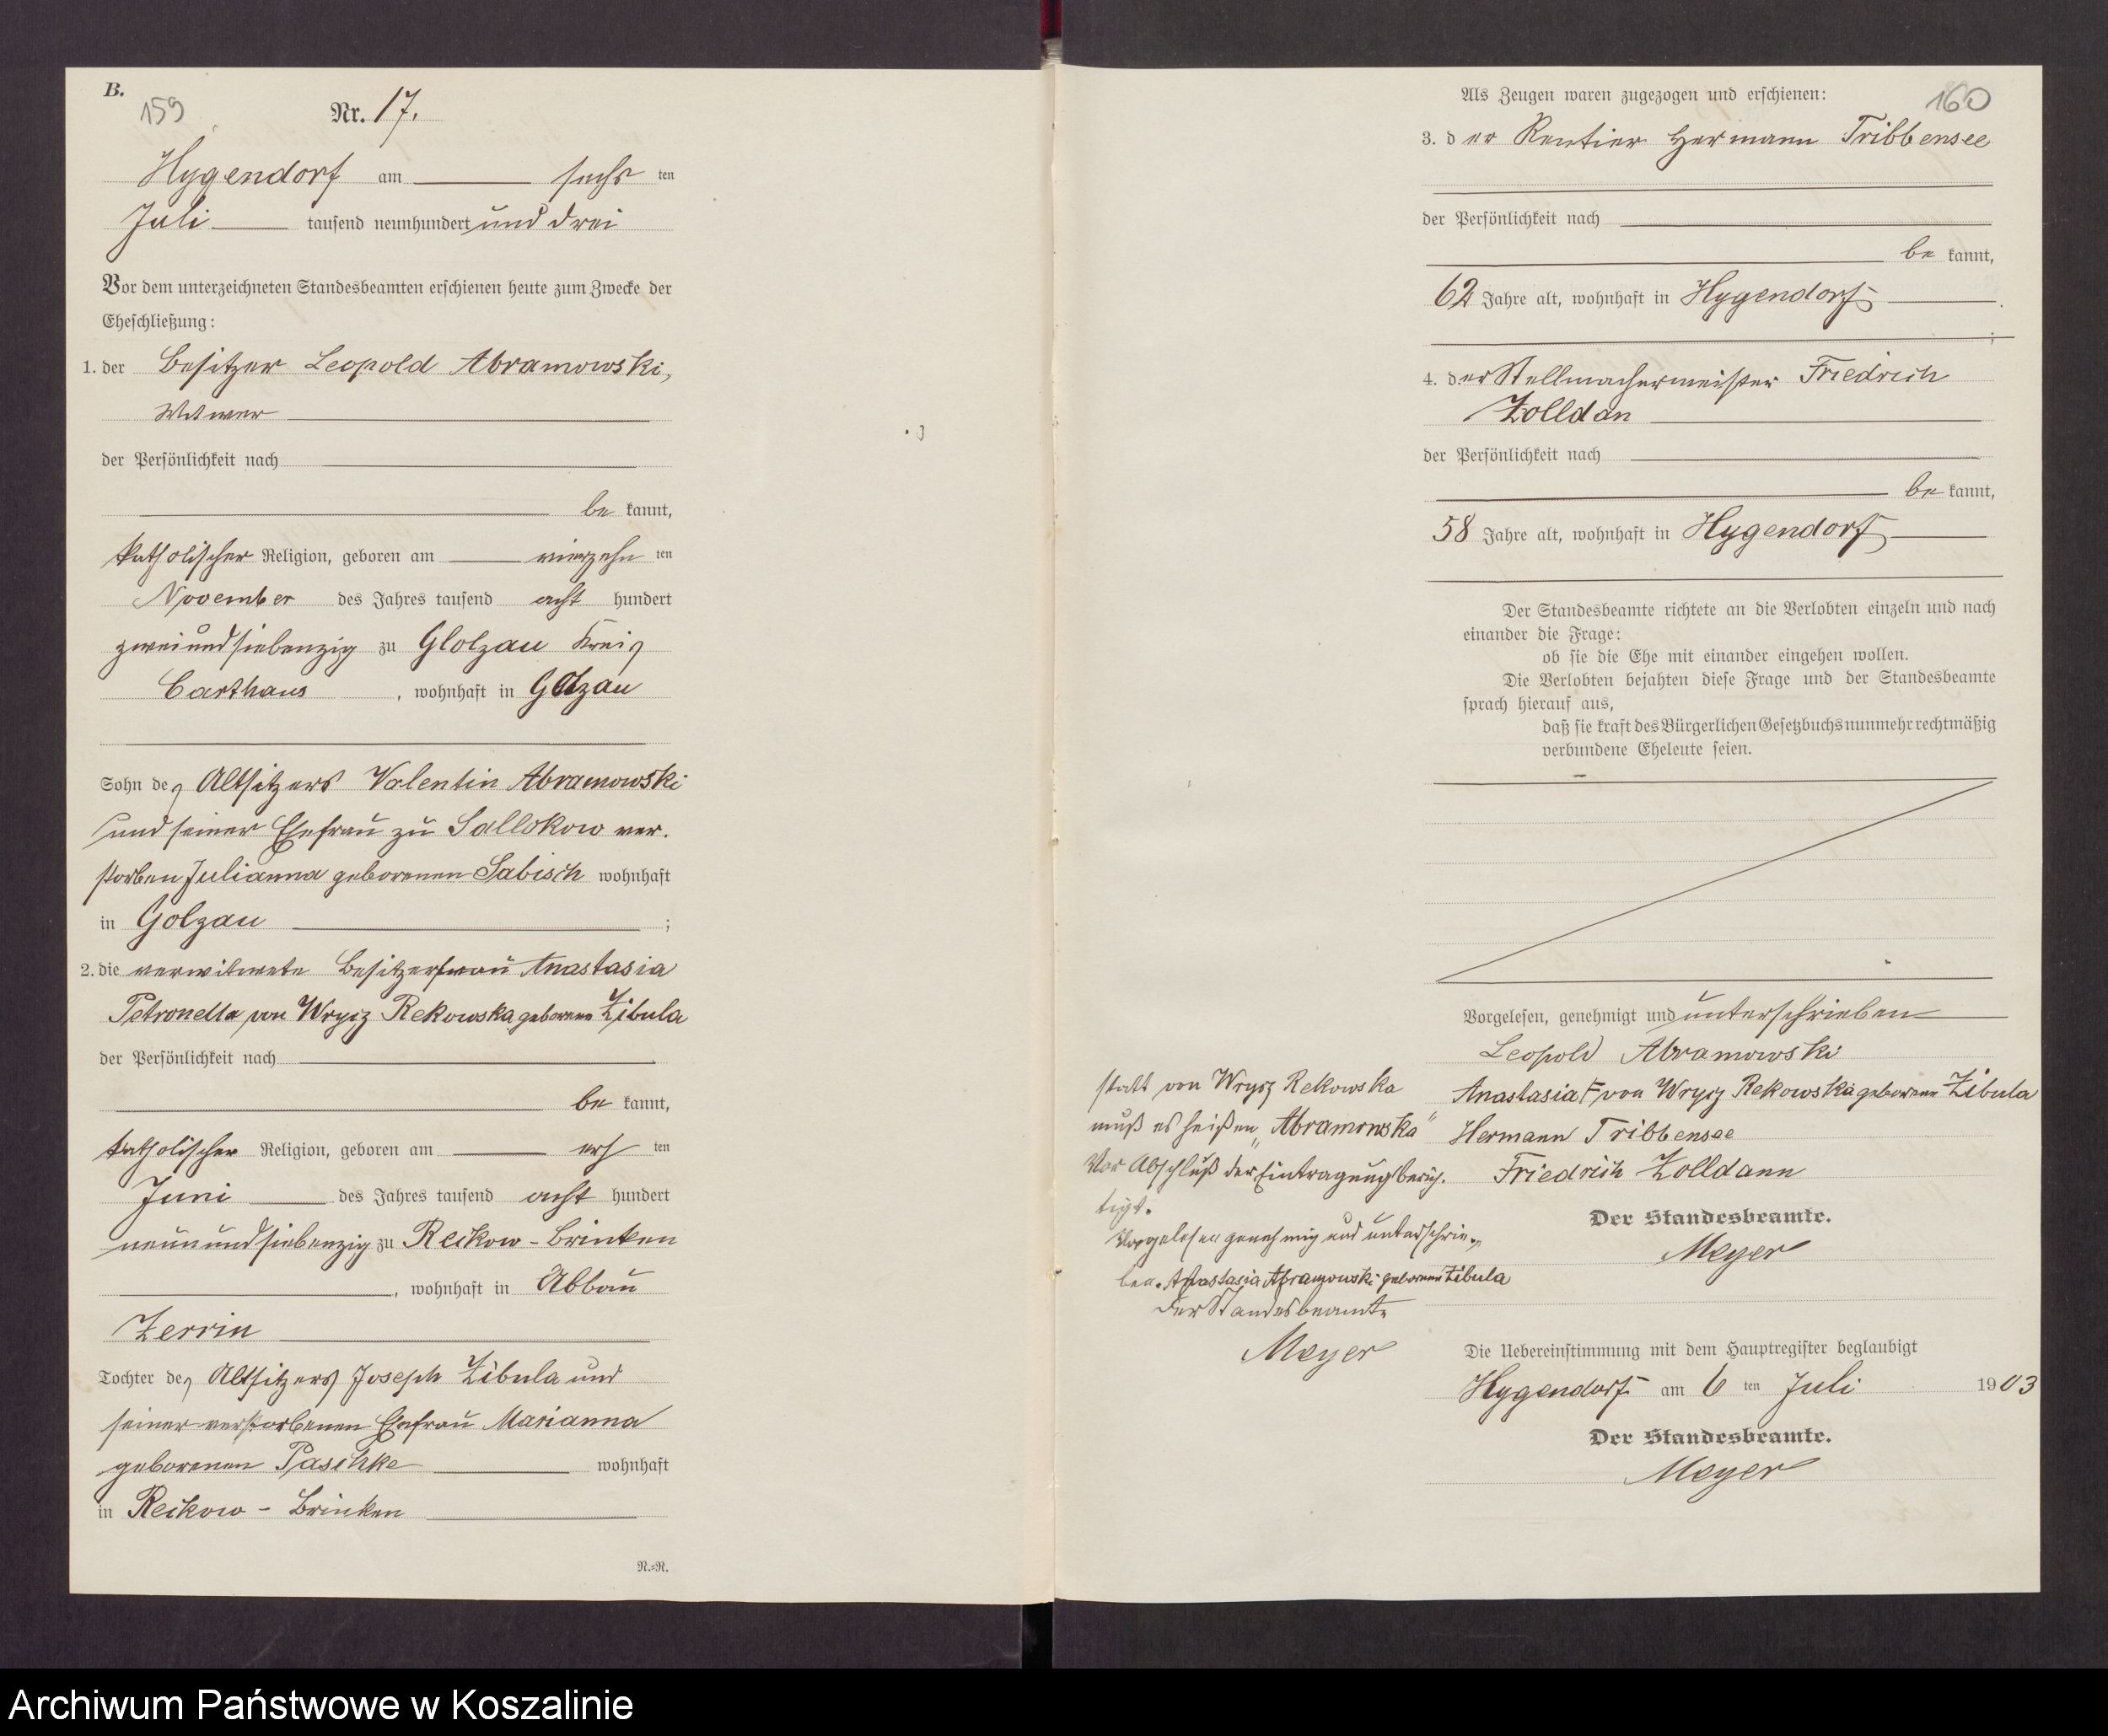 B.
159
Nr. 17.
Hygendorf am sechs ten
Juli tausend neunhundert und drei
Vor dem unterzeichneten Standesbeamten erschienen heute zum Zwecke der
Eheschließung:
1. der Besitzer Leopold Abramowski,
Witwer
der Persönlichkeit nach
be kannt,
katholischer Religion, geboren am vierzehn ten
November des Jahres tausend acht hundert
zweiundsiebenzig zu Glolzau Kreis
Carthaus , wohnhaft in Golzau
Sohn des Altsitzers Valentin Abramowski
und seiner Ehefrau zu Sallokow ver-
storben Julianna geborenen Sabisch wohnhaft
in Golzau ;
2. die verwitwete Besitzerfrau Anastasia
Petronella von Wrycz Rekowska geborene Zibula
der Persönlichkeit nach
be kannt,
katholischer Religion, geboren am ers ten
Juni des Jahres tausend acht hundert
neunundsiebenzig zu Reckow - Brinken
, wohnhaft in Abbau
Zerrin
Tochter des Altsitzers Joseph Zibula und
seiner verstorbenen Ehefrau Marianna
geborenen Paschke wohnhaft
in Reckow - Brinken
N.=R.
160
Als Zeugen waren zugezogen und erschienen:
3. der Rentier Hermann Tribbensee
der Persönlichkeit nach
be kannt,
62 Jahre alt, wohnhaft in Hygendorf
;
4. der Stellmachermeister Friedrich
Zolldan
der Persönlichkeit nach
be kannt,
58 Jahre alt, wohnhaft in Hygendorf
Der Standesbeamte richtete an die Verlobten einzeln und nach
einander die Frage:
ob sie die Ehe mit einander eingehen wollen.
Die Verlobten bejahten diese Frage und der Standesbeamte
sprach hierauf aus,
daß sie kraft des Bürgerlichen Gesetzbuchs nunmehr rechtmäßig
verbundene Eheleute seien.
Vorgelesen, genehmigt und unterschrieben
Leopold Abramowski
Anastasia von Wrycz Rekowska geborene Zibula
Hermann Tribbensee
Friedrich Zolldann
Der Standesbeamte.
Meyer
statt von Wrycz Rekowska
muß es heißen „Abramowska"
Vor Abschluß der Eintragung berich-
tigt.
Vorgelesen genehmig und unterschrie-
ben. Anastasia Abramowski geborene Zibula
Der Standesbeamte
Meyer
Die Uebereinstimmung mit dem Hauptregister beglaubigt
Hygendorf am 6 ten Juli 1903
Der Standesbeamte.
Meyer
Archiwum Państwowe w Koszalinie